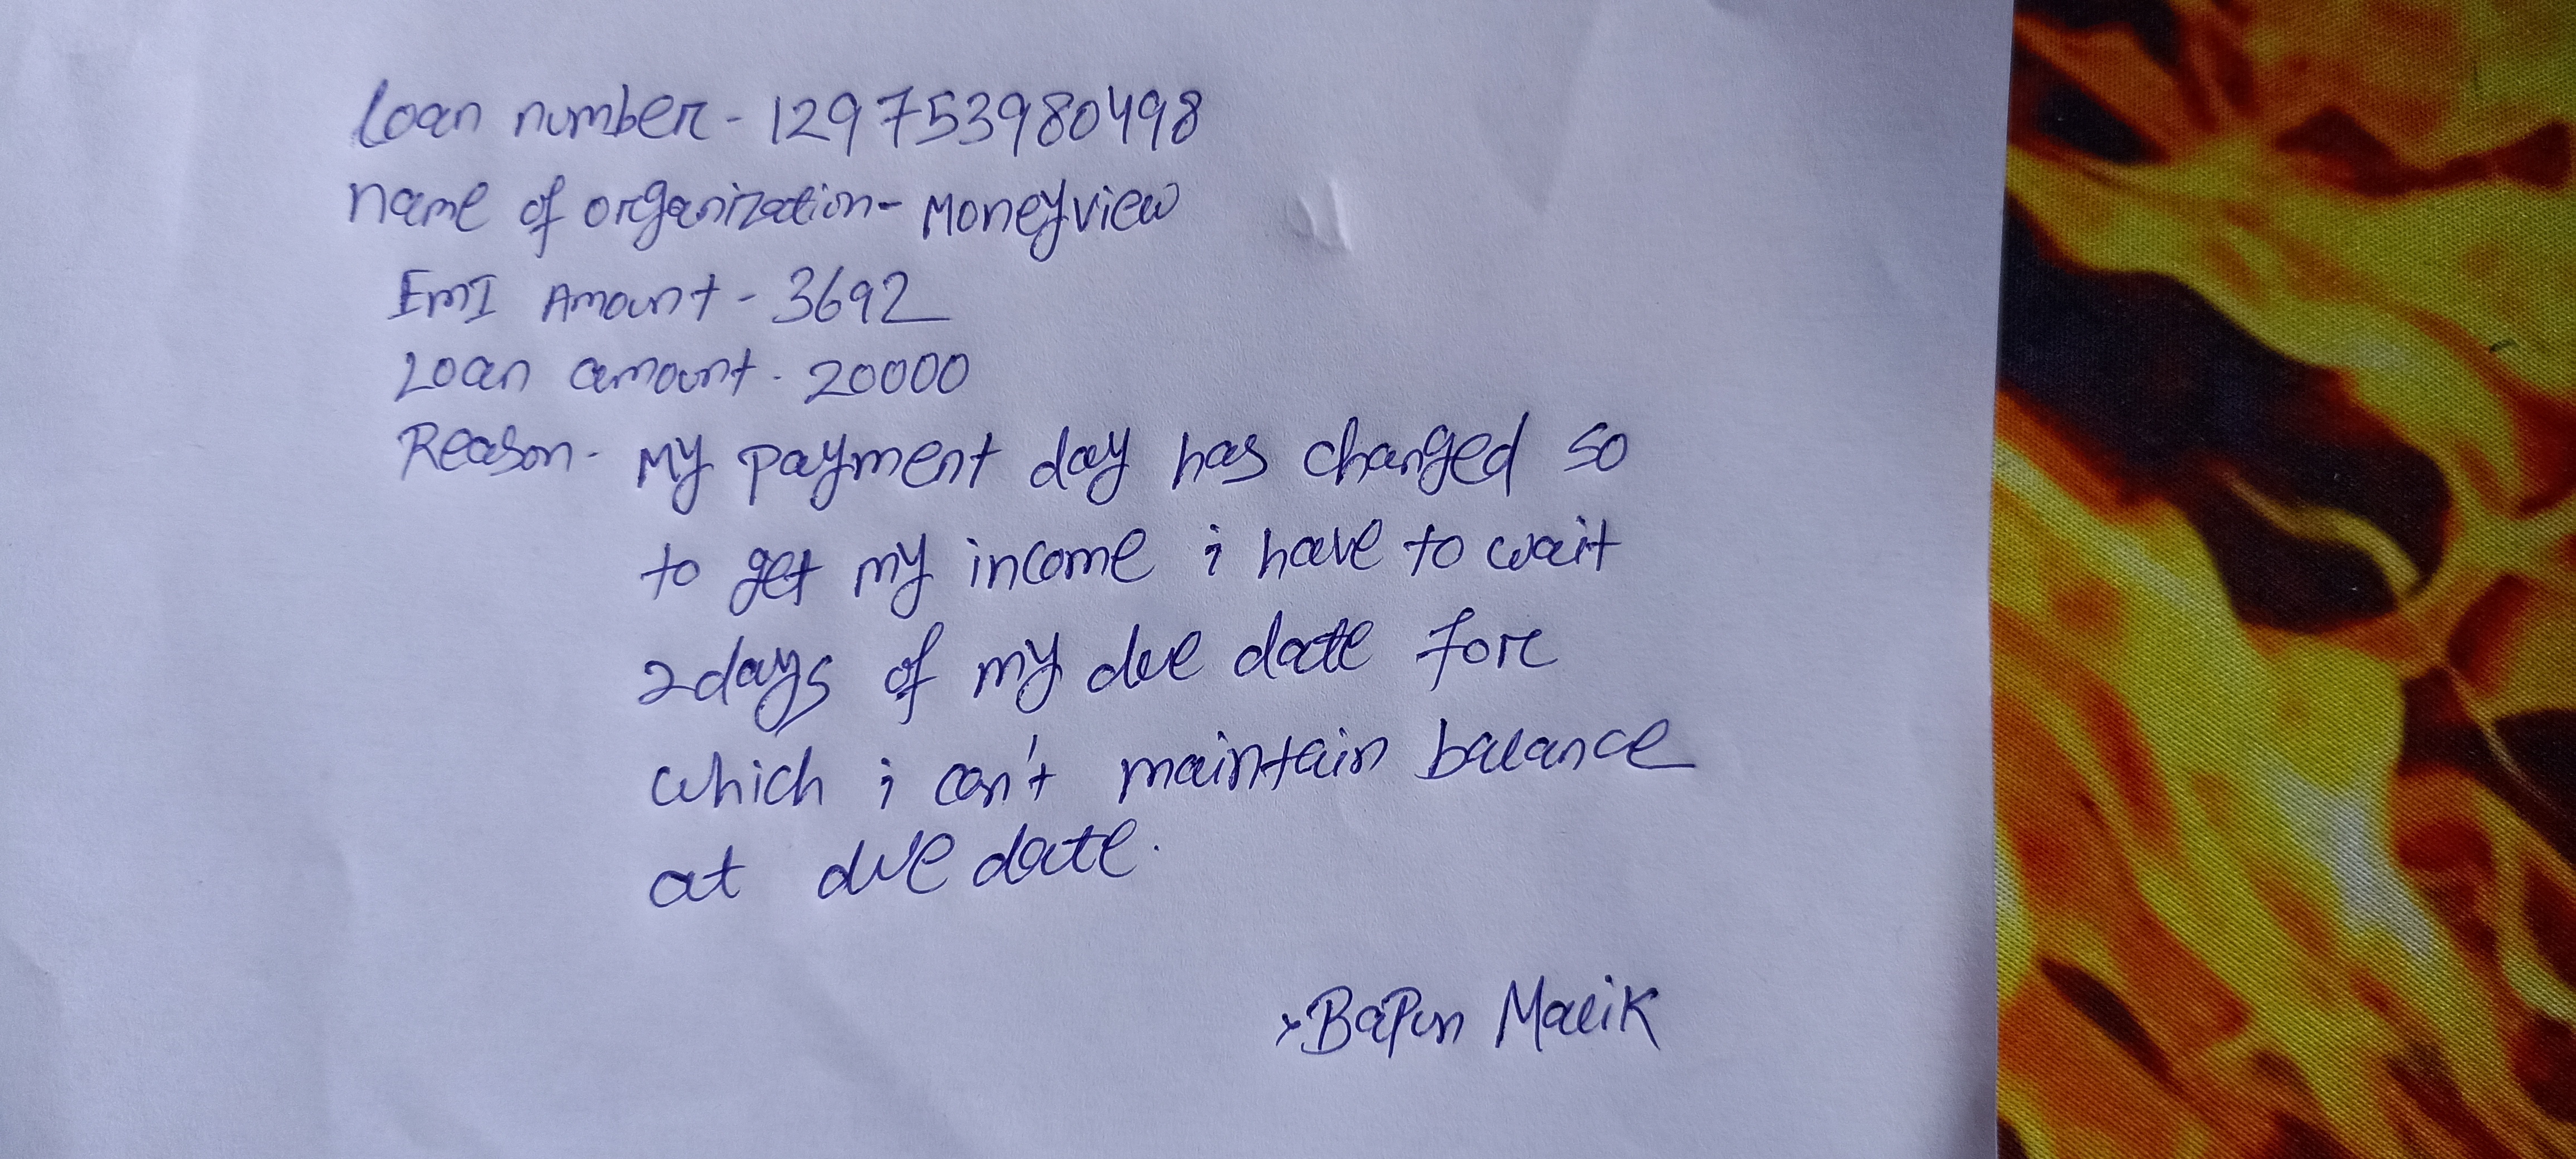 Loan number - 129753980498
name of organization - Moneyview
EMI Amount - 3692
Loan amount - 20000
Reason - My payment day has changed so
to get my income i have to wait
2 days of my due date fore
which i can't maintain balance
at due date.
Bapun Malik